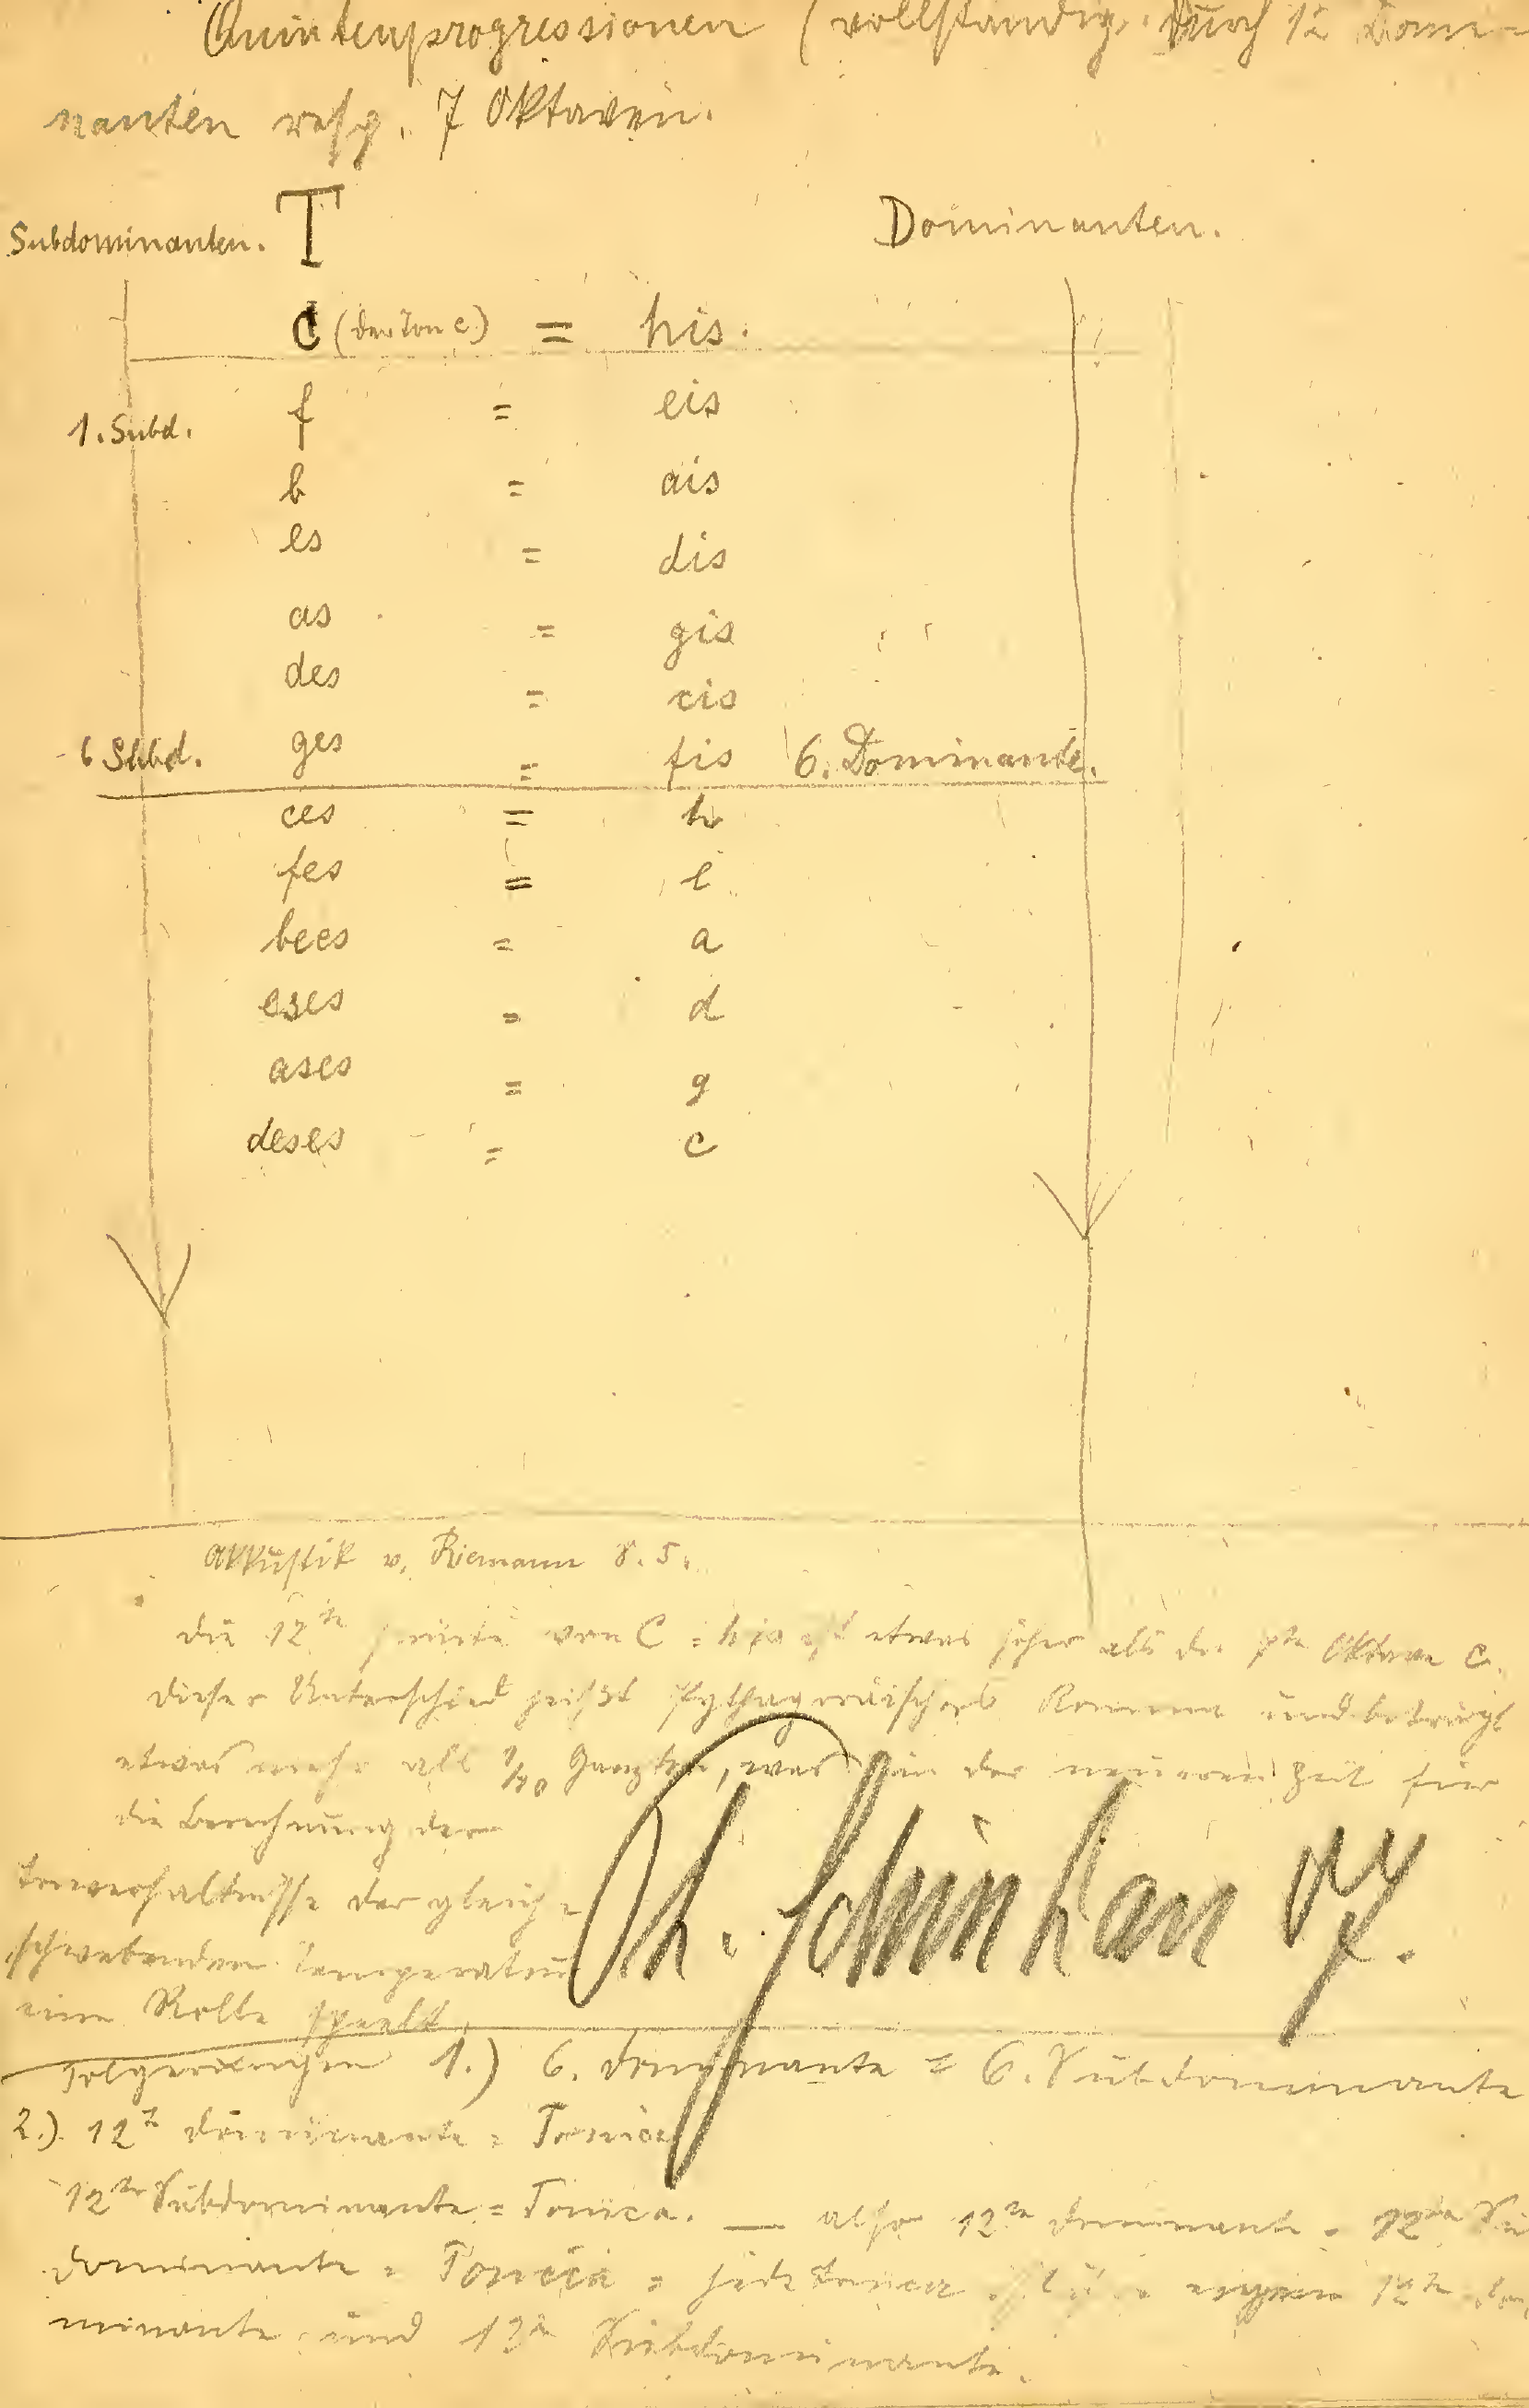 Quintenprogressionen (vollständig. durch 12 Domi-
nanten resp. 7 Oktaven.
Subdominanten. T Dominanten.
C (der Ton c) = his.
1. Subd. f = eis
b = ais
es = dis
as = gis
des = cis
6 Subd. ges = fis 6. Dominante.
ces = h
fes = e
bees = a
eses = d
ases = g
deses = c
Akkustik v. Riemann S. 5.
die 12te Quinte von C = his ist etwas höher als die 7te Oktave c.
dieser Unterschied heisst Pythagoräisches Komma und beträgt
etwas mehr als 1/10 Ganzton, was in der neueren Zeit für
die Berechnung der
Tonverhältnisse der gleich-
schwebenden Temperatur
eine Rolle spielt.
Th.
Folgerungen 1.) 6. Dominante = 6. Subdominante
2.) 12te Dominante = Tonica
12te Subdominante = Tonica. — also 12te Dominante = 12te Su
dominante = Tonica = jede Tonica eigene 12te Do
minante und 12te Subdominante.